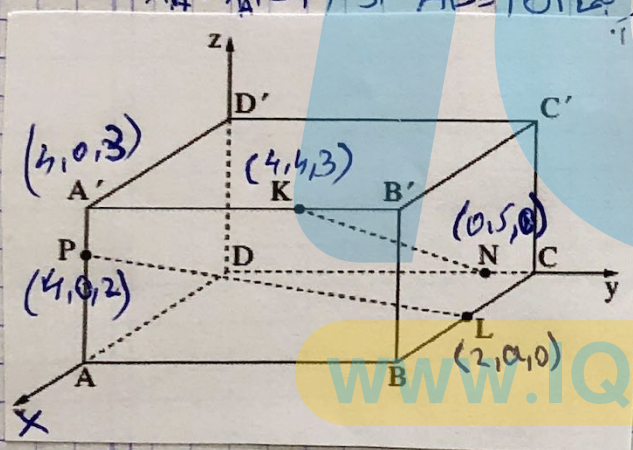 z
D′
C′
(4,0,3)
(4,4,3)
A′
K
B′
(0,5,0)
P
D
N
C
(4,0,2)
y
L
A
B
x
www.IQ